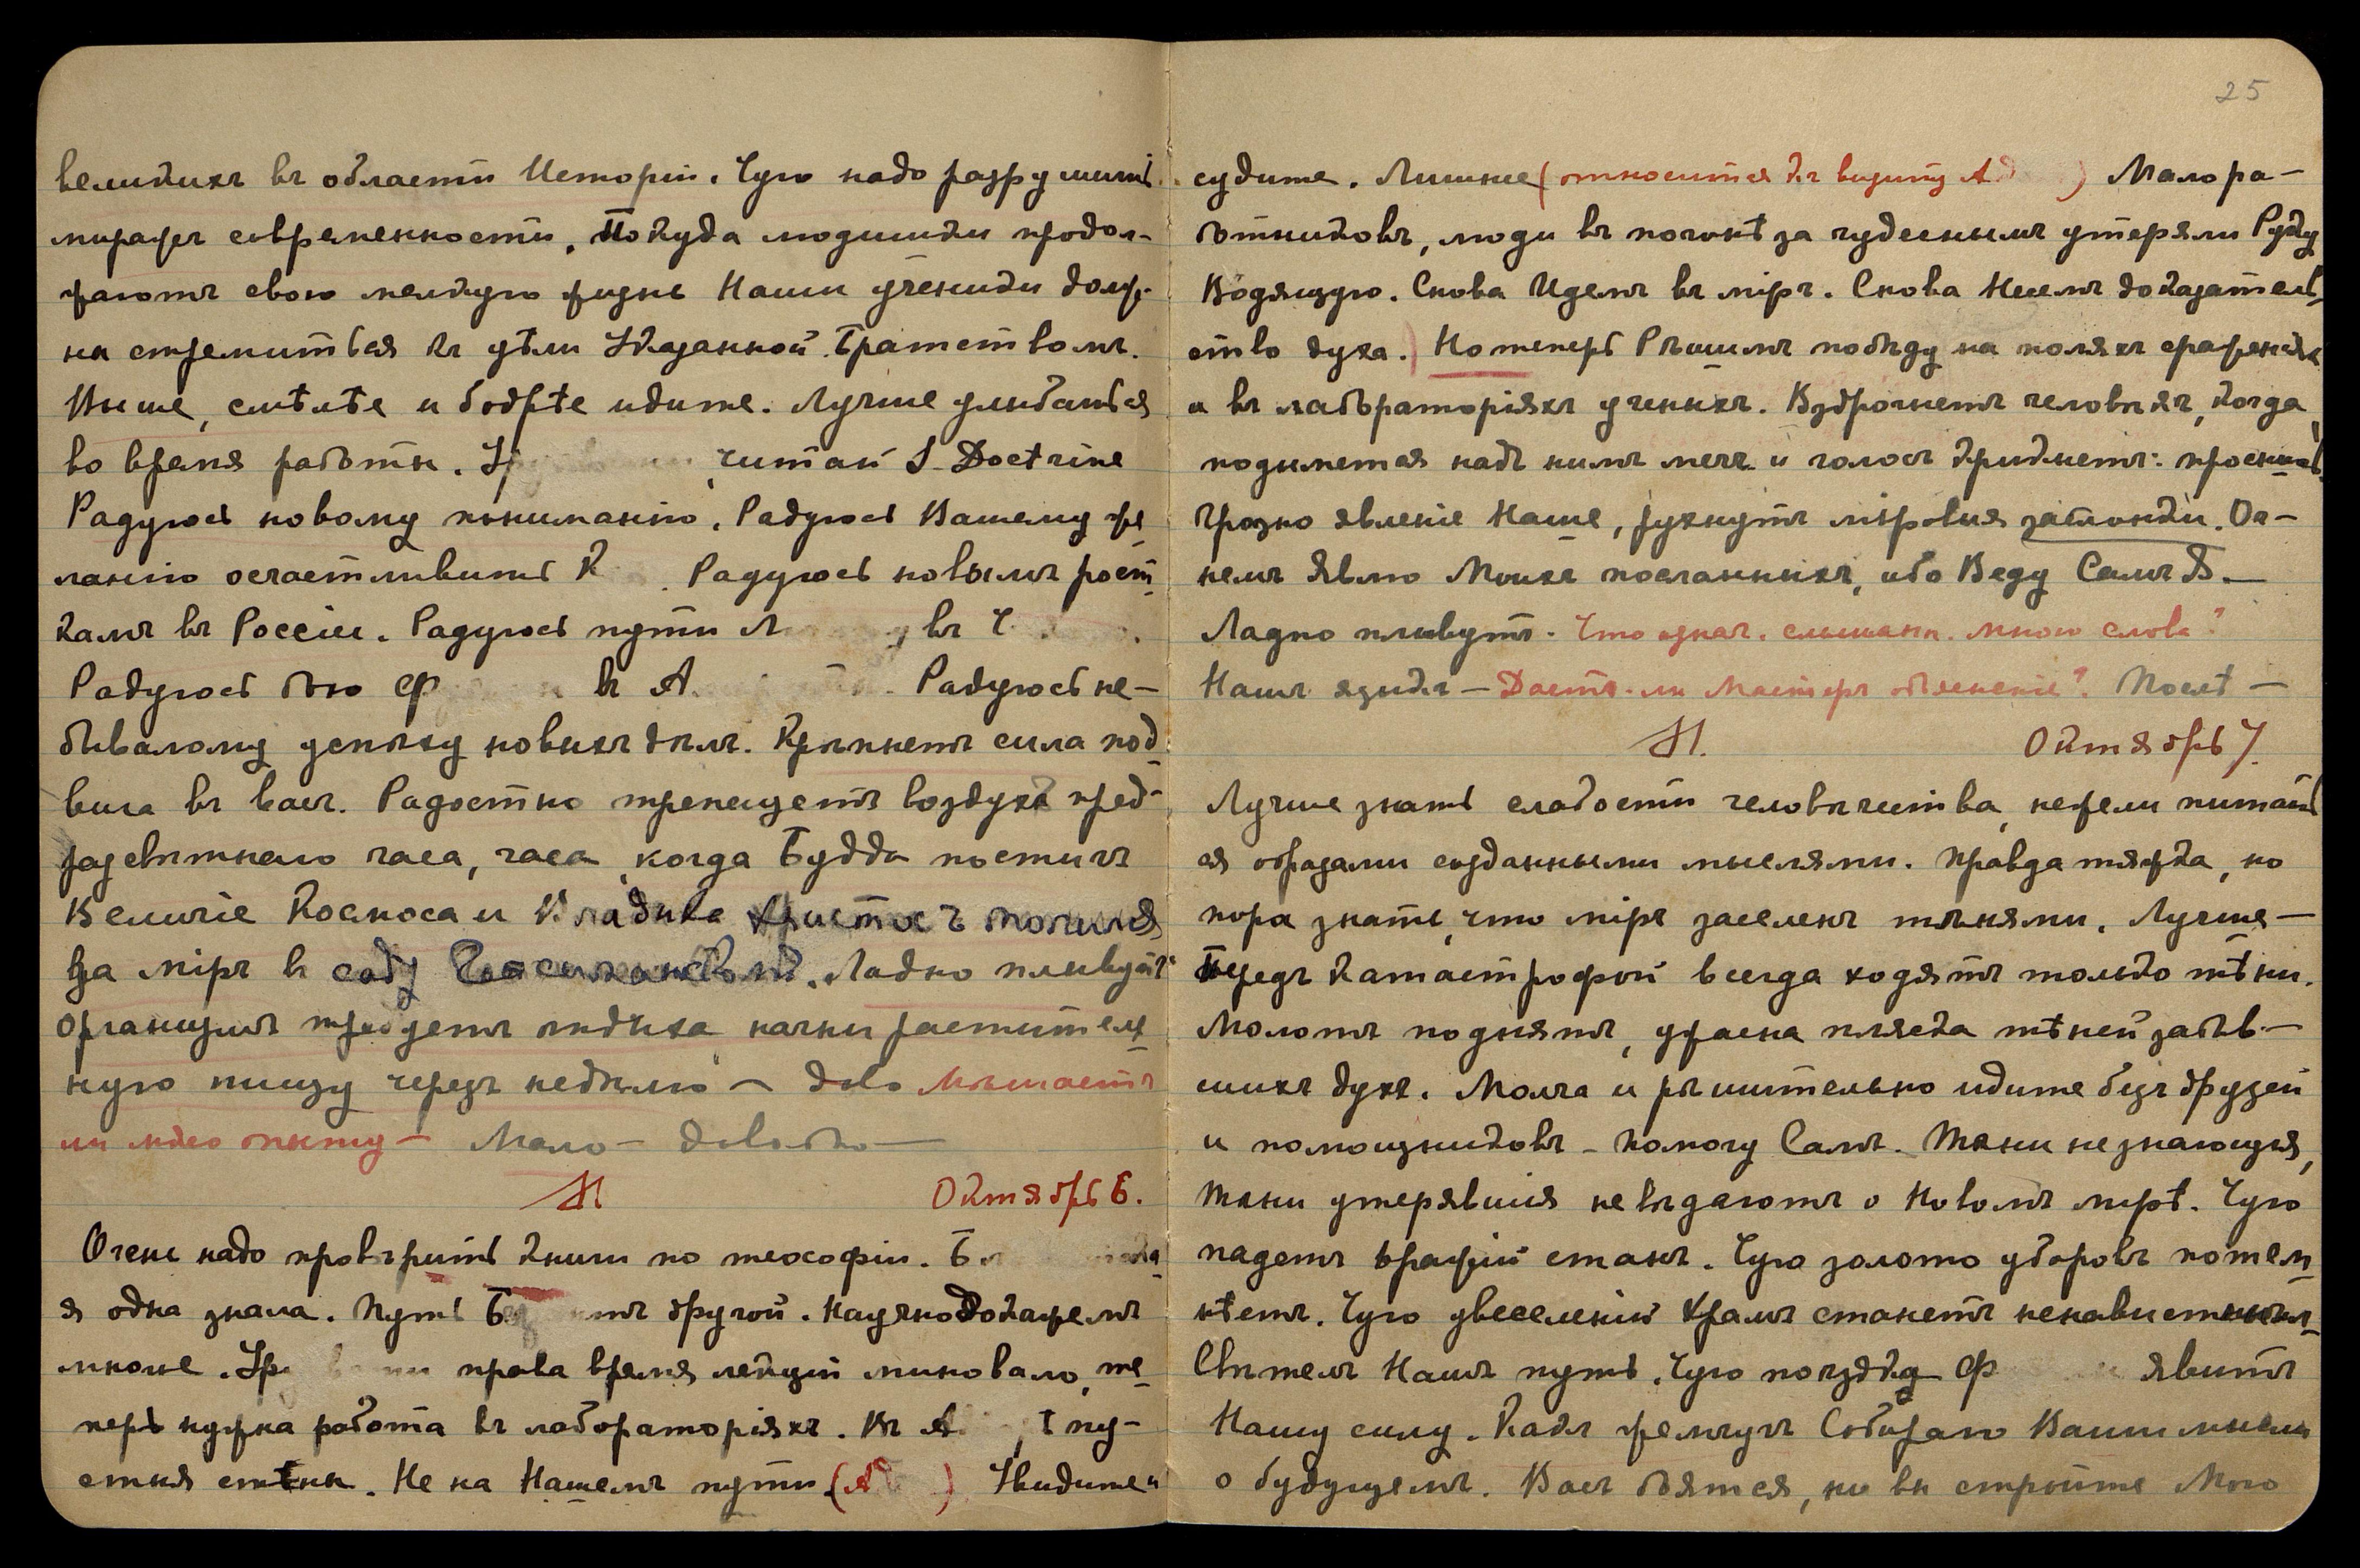 великихъ въ области Исторіи. Чую надо разрушить
миражъ современности. Покуда людишки продол-
жаютъ свою мелкую жизнь Наши ученики долж-
ны стремиться къ цѣли Указанной Братствомъ.
Выше, смѣлѣе и бодрѣе идите. Лучше улыбаться
во время работы. читай S. Doctrine
Радуюсь новому пониманію. Радуюсь Вашему же
ланію осчастливить К Радуюсь новымъ рост
камъ въ Россіи. Радуюсь пути Л въ Ч
Радуюсь бою Ф въ А Радуюсь не-
бывалому успѣху новыхъ дѣлъ. Крѣпнетъ сила под
вига въ васъ. Радостно трепещетъ воздухъ пред-
разсвѣтнаго часа, часа, когда Будда постигъ
Величіе Космоса и Владыка Христосъ молился
за міръ въ саду Геѳсиманскомъ. Ладно плывутъ
Организмъ требуетъ отдыха начни раститель
ную пищу черезъ недѣлю — Мѣшаетъ
ли мясо опыту — Мало — довольно —
М Октябрь 6.
Очень надо провѣрить книги по теософіи. Бл
я одна знала. Путь Без другой. Научно докажемъ
многое. Ур права время лекцій миновало, те
перь нужна работа въ лабораторіяхъ. Въ А ѣ пу-
стыя стѣны. Не на Нашемъ пути (А ) Увидите и
25
судите. Лишнее (относится къ визиту Ад ) Мало ра-
ботниковъ, люди въ погонѣ за чудеснымъ утеряли Руку
Водящую. Снова Идемъ въ міръ. Снова Несемъ доказатель
ство духа. ) Но теперь Рѣшимъ побѣду на поляхъ сраженія
и въ лабораторіяхъ ученыхъ. Вздрогнетъ человѣкъ, когда
подымется надъ нимъ мечъ и голосъ крикнетъ: проснись
Грозно явленіе Наше, рухнутъ міровыя заслонки. Ог-
немъ Явлю Моихъ посланныхъ, ибо Веду Самъ Я. —
Ладно плывутъ. Что означ. слышанн. мною слова?
Нашъ языкъ — Дастъ-ли Мастеръ объясненіе? Послѣ —
М. Октябрь 7.
Лучше знать слабости человѣчества, нежели питать
ся образами созданными мыслями. Правда тяжка, но
пора знать, что міръ заселенъ тѣнями. Лучше —
Передъ катастрофой всегда ходятъ только тѣни.
Молотъ поднятъ, ужасна пляска тѣней забыв-
шихъ духъ. Молча и рѣшительно идите безъ друзей
и помощниковъ — помогу Самъ. Тѣни незнающія,
тѣни утерявшія не вѣдаютъ о Новомъ мирѣ. Чую
падетъ вражій станъ. Чую золото уборовъ потем
нѣетъ. Чую увеселеній храмъ станетъ ненавистнымъ
Свѣтелъ Нашъ путь. Чую поѣздка Ф явитъ
Нашу силу. Какъ жемчугъ Собираю Ваши мысли
о будущемъ. Васъ боятся, но вы стройте Мою